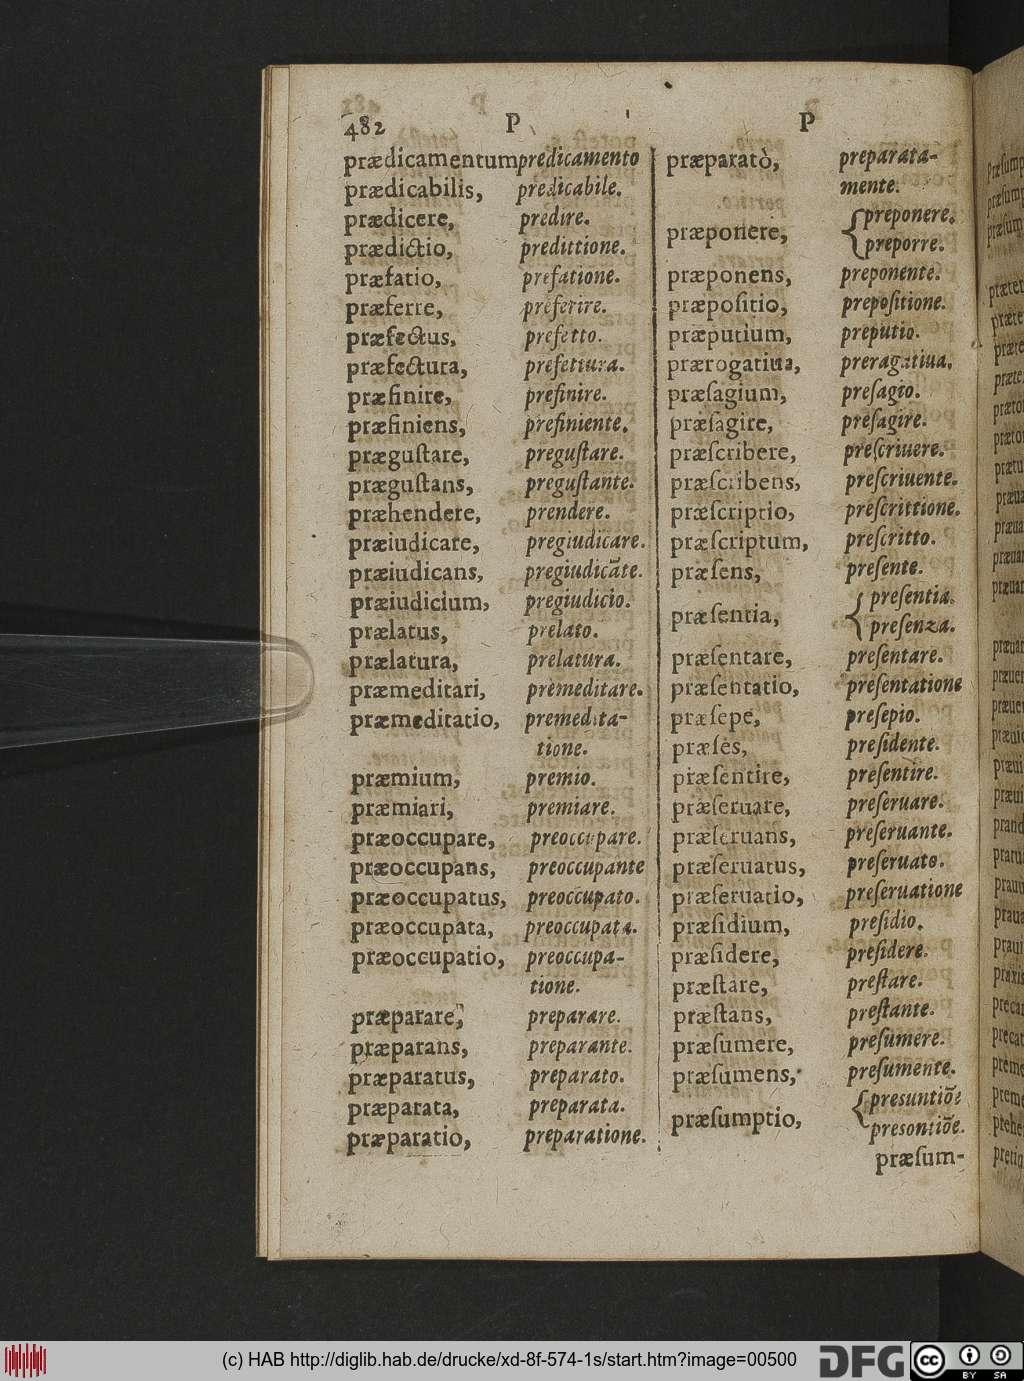 482 P P
prædicamentum predicamento
prædicabilis, predicabile.
prædicere, predire.
prædictio, predittione.
præfatio, prefatione.
præferre, preferire.
præfectus, prefetto.
præfectura, prefettura.
præfinire, prefinire.
præfiniens, prefiniente.
præguſtare, preguſtare.
præguſtans, preguſtante.
præhendere, prendere.
præiudicare, pregiudicare.
præiudicans, pregiudicāte.
præiudicium, pregiudicio.
prælatus, prelato.
prælatura, prelatura.
præmeditari, premeditare.
præmeditatio, premedita-
tione.
præmium, premio.
præmiari, premiare.
præoccupare, preoccupare.
præoccupans, preoccupante
præoccupatus, preoccupato.
præoccupata, preoccupata.
præoccupatio, preoccupa-
tione.
præparare, preparare.
præparans, preparante.
præparatus, preparato.
præparata, preparata.
præparatio, preparatione.
præparatò, preparata-
mente.
præponere, {preponere.
preporre.
præponens, preponente.
præpoſitio, prepoſitione.
præputium, preputio.
prærogatiua, preragatiua.
præſagium, preſagio.
præſagire, preſagire.
præſcribere, preſcriuere.
præſcribens, preſcriuente.
præſcriptio, preſcrittione.
præſcriptum, preſcritto.
præſens, preſente.
præſentia, {preſentia.
preſenza.
præſentare, preſentare.
præſentatio, preſentatione
præſepe, preſepio.
præſes, preſidente.
præſentire, preſentire.
præſeruare, preſeruare.
præſeruans, preſeruante.
præſeruatus, preſeruato.
præſeruatio, preſeruatione
præſidium, preſidio.
præſidere, preſidere.
præſtare, preſtare.
præſtans, preſtante.
præſumere, preſumere.
præſumens, preſumente.
præſumptio, {presuntiōe
presontiōe.
præſum-
(c) HAB http://diglib.hab.de/drucke/xd-8f-574-1s/start.htm?image=00500
DFG
cc BY SA